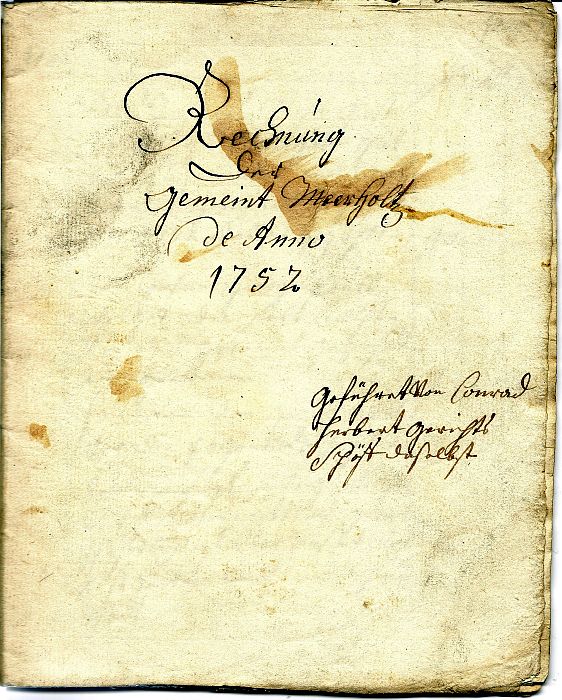 Rechnúng
der
gemeint Meerholtz
de Anno
1752
geführet von Conrad
Herbert gerichts
daselbst